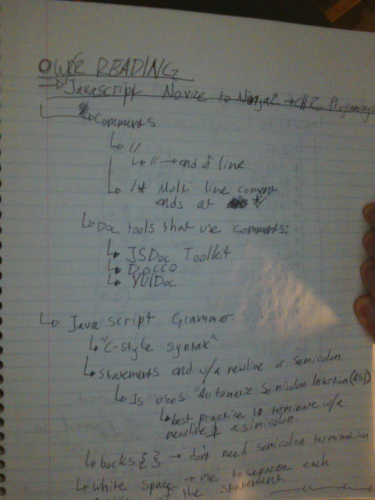 O WEB READING
→ Javascript Novice to Ninja2 → CH2 Programming
↳ Comments
↳ //
↳ // → end of line
↳ /* Multi line coment
ends at */
↳ Doc tools that use comments:
↳ JSDoc Toolkit
↳ Docco
↳ YUIDoc
↳ Java script Grammar
↳ "C-style syntax"
↳ statements end w/a newline or semicolon
↳ Js uses "Automatic Semicolon Insertion (ASI)
↳ best practice to terminate w/a
newline & a semicolon
↳ blocks { } → dont need semicolon termination
↳ White Space → to separate each
of the statement